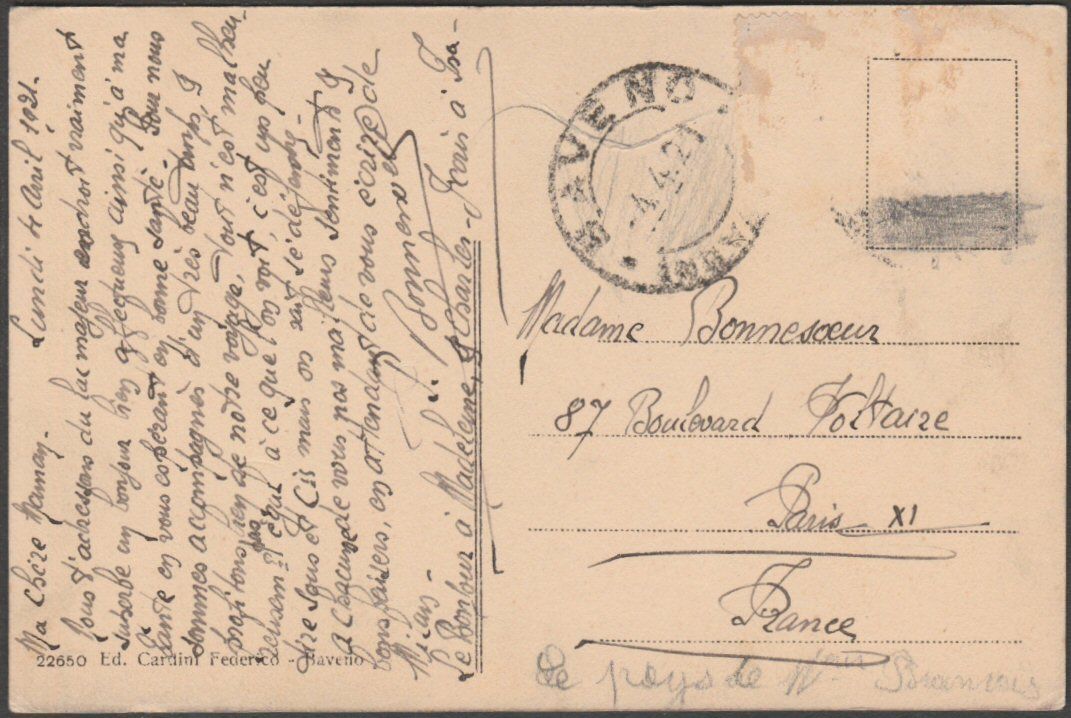 Lundi 4 Avril 1921.
Ma chère Maman.
Nous t'adressons du lac majeur endroit vraiment
superbe un bonjour bien affectueux ainsi qu'à ma
tante en vous espérant en bonne santé. Pour nous
sommes accompagnés d'un très beau temps, &
profitons bien de notre voyage. Tout n'est malheu-
à ce que l'on voit, c'est un peu
sous et Cis mais on sait se défendre.
à chacune de vous nos meilleurs sentiments &
bons baisers, en attendant de vous écrire de
Milan -
Le Bonjour à Madeleine, & Charles - Jean à
BAVENO
4.4.21
Madame Bonnesoeur
87 Boulevard Voltaire
Paris XI
France
22650 Ed. Cardini Federico - Baveno
Le pays de